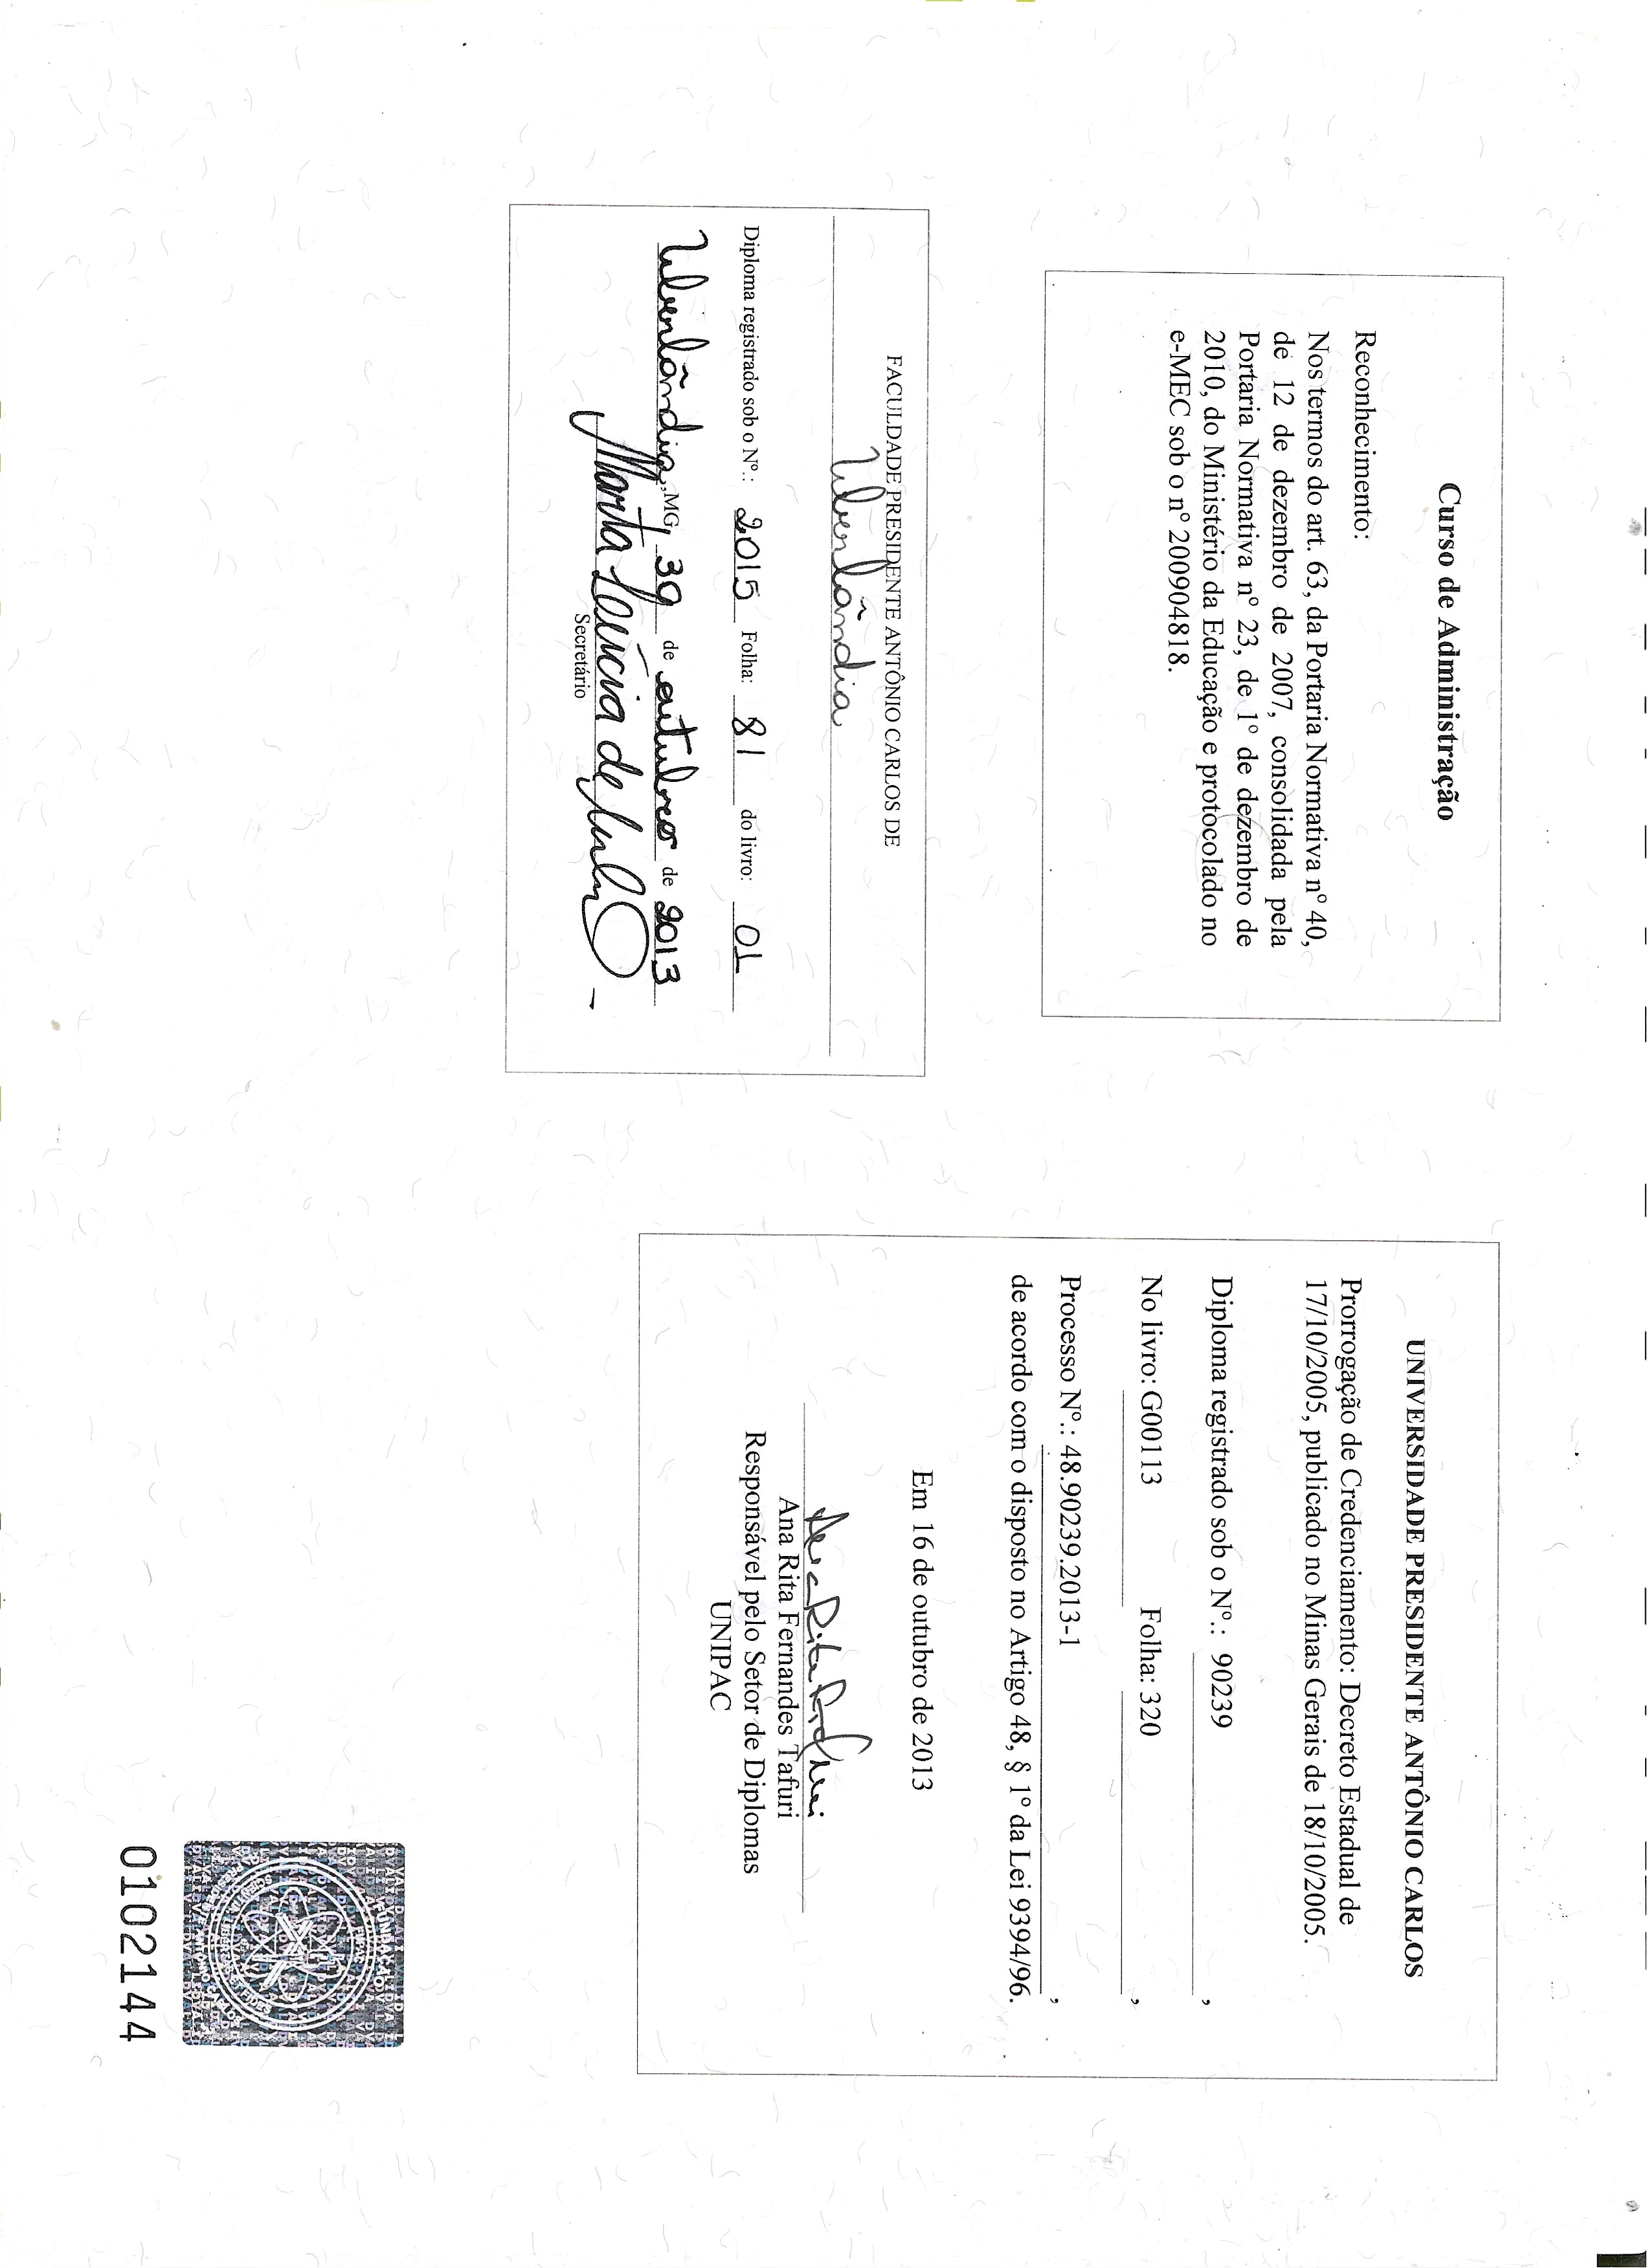 Curso de Administração
Reconhecimento:
Nos termos do art. 63, da Portaria Normativa nº 40,
de 12 de dezembro de 2007, consolidada pela
Portaria Normativa nº 23, de 1º de dezembro de
2010, do Ministério da Educação e protocolado no
e-MEC sob o nº 200904818.
FACULDADE PRESIDENTE ANTÔNIO CARLOS DE
Uberlândia
Diploma registrado sob o Nº.: 2015 Folha: 81 do livro: 01
Uberlândia, MG, 30 de outubro de 2013
Marta Lúcia de
Secretário
UNIVERSIDADE PRESIDENTE ANTÔNIO CARLOS
Prorrogação de Credenciamento: Decreto Estadual de
17/10/2005, publicado no Minas Gerais de 18/10/2005.
Diploma registrado sob o Nº.: 90239,
No livro: G00113 Folha: 320,
Processo Nº.: 48.90239.2013-1,
de acordo com o disposto no Artigo 48, § 1º da Lei 9394/96.
Em 16 de outubro de 2013
Ana Rita Fernandes Tafuri
Responsável pelo Setor de Diplomas
UNIPAC
0102144